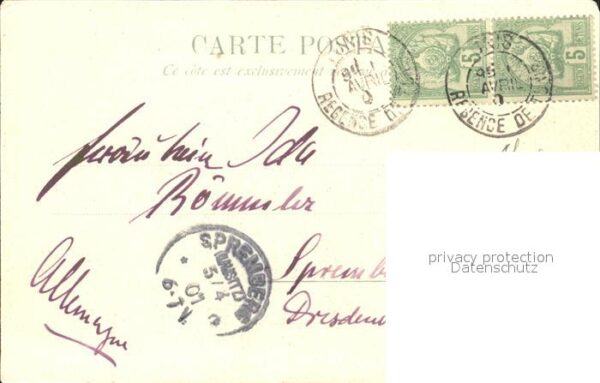 CARTE POSTA
Ce côté est exclusivement
5
5
AVRIL
REGENCE DE
REGENCE DE
Fräulein Ida
Römmler
SPREMBERG
(LAUSITZ)
3/4
01
6-7V.
Spremb
Dresden
Allemagne
privacy protection
Datenschutz